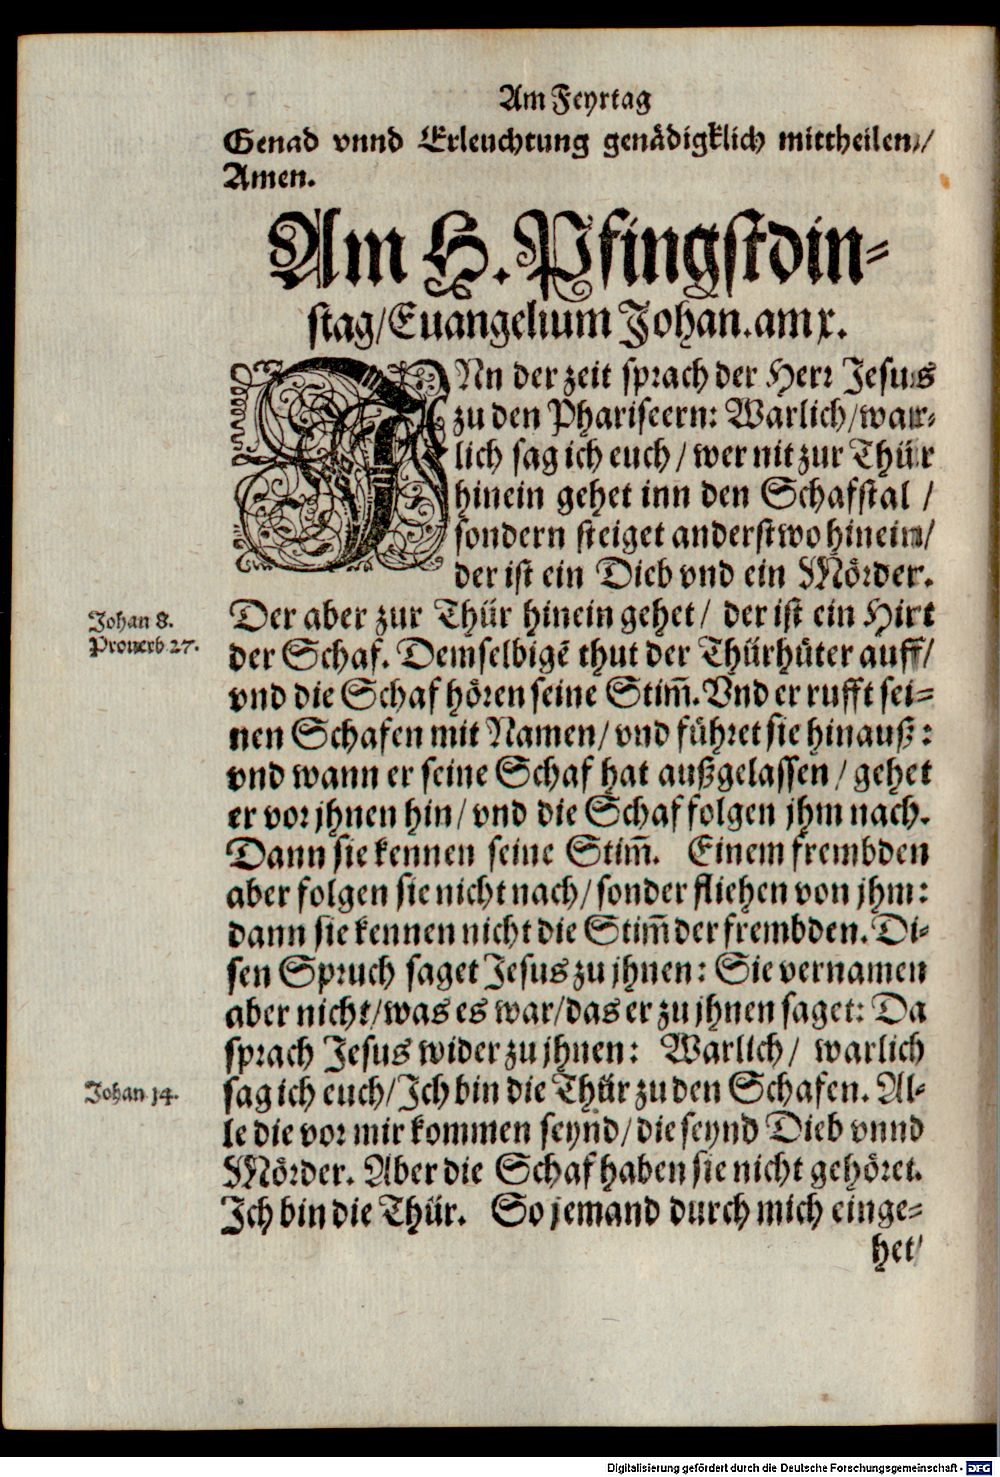 Am Feyrtag
Genad vnnd Erleuchtung genädigklich mittheilen/
Amen.
Am H. Pfingstdin-
stag/Euangelium Johan.am x.
INn der zeit sprach der Herr Jesus
zu den Phariseern: Warlich/war-
lich sag ich euch/wer nit zur Thür
hinein gehet inn den Schafstal /
sondern steiget anderstwo hinein/
der ist ein Dieb vnd ein Mörder.
Johan 8.
Der aber zur Thür hinein gehet/ der ist ein Hirt
Prouerb 27.
der Schaf. Demselbigē thut der Thürhüter auff/
vnd die Schaf hören seine Stim̃. Vnd er rufft sei-
nen Schafen mit Namen/vnd führet sie hinauß:
vnd wann er seine Schaf hat außgelassen/gehet
er vor jhnen hin/vnd die Schaf folgen jhm nach.
Dann sie kennen seine Stim̃. Einem frembden
aber folgen sie nicht nach/sonder fliehen von jhm:
dann sie kennen nicht die Stim̃ der frembden. Di-
sen Spruch saget Jesus zu jhnen: Sie vernamen
aber nicht/was es war/das er zu jhnen saget: Da
sprach Jesus wider zu jhnen: Warlich/ warlich
Johan 14.
sag ich euch/Ich bin die Thür zu den Schafen. Al-
le die vor mir kommen seynd/die seynd Dieb vnnd
Mörder. Aber die Schaf haben sie nicht gehöret.
Ich bin die Thür. So jemand durch mich einge-
het/
Digitalisierung gefördert durch die Deutsche Forschungsgemeinschaft - DFG